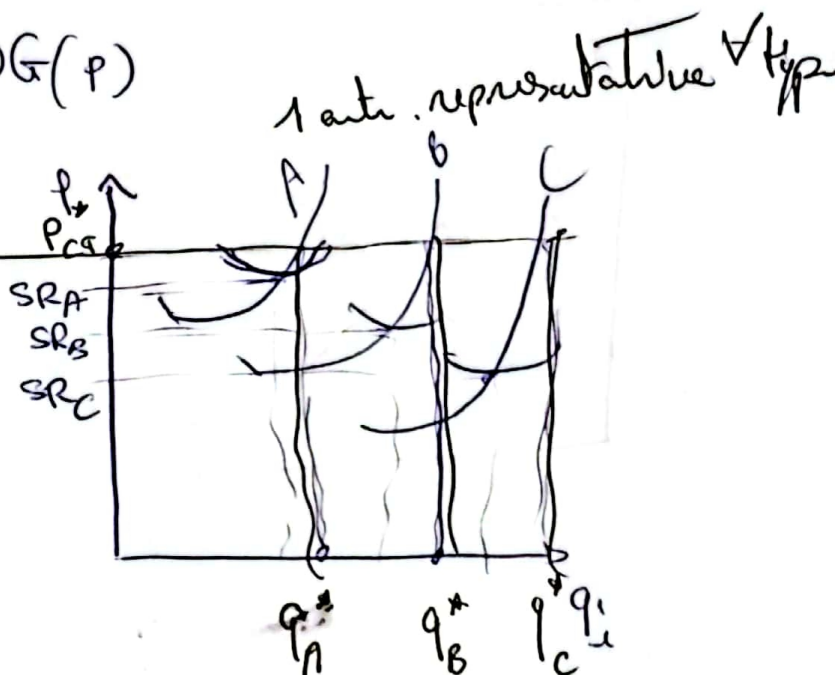 OG(p)
1 entr. représentative ∀ type
A B C
P
P_CT
SR_A
SR_B
SR_C
q_A* q_B* q_C* q_i